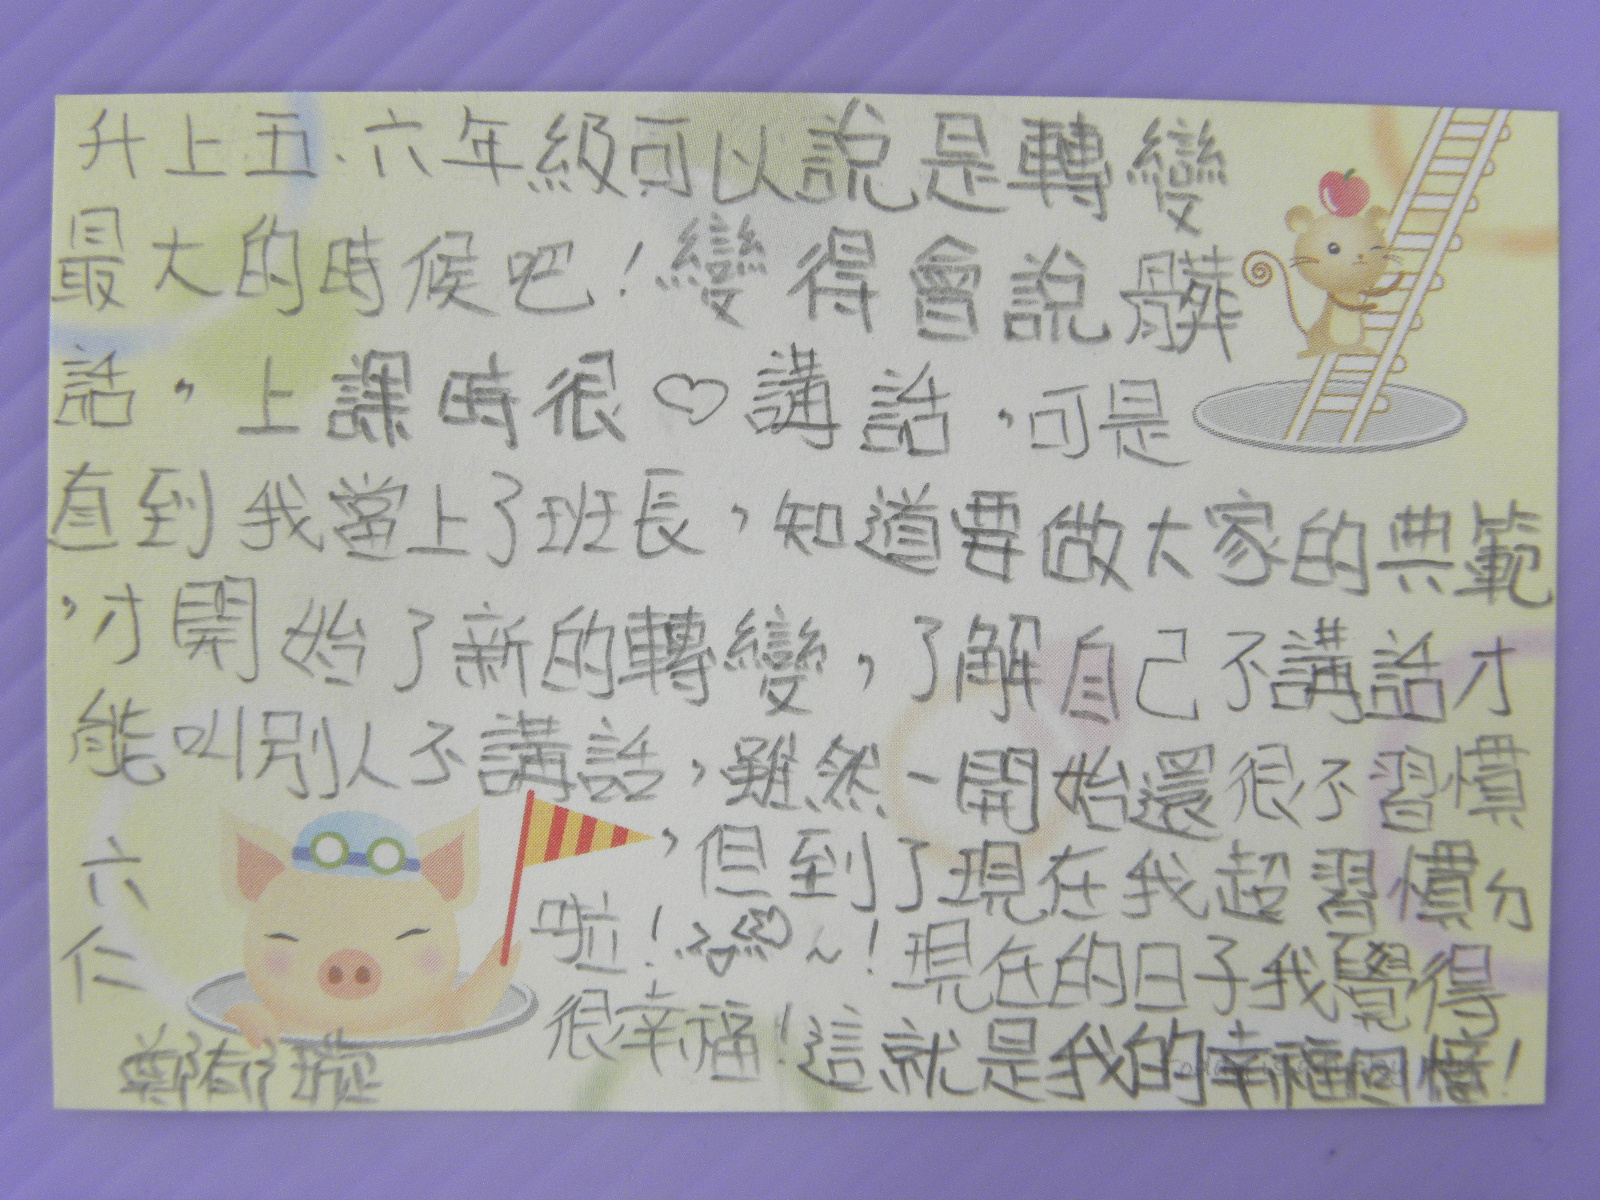 升上五、六年級可以說是轉變
最大的時候吧!變得會說髒
話,上課時很♡講話,可是
直到我當上了班長,知道要做大家的典範
,才開始了新的轉變,了解自己不講話才
能叫別人不講話,雖然一開始還很不習慣
,但到了現在我超習慣ㄉ
啦!~!現在的日子我覺得
很幸福!這就是我的幸福回憶!
六
仁
鄭郁璇